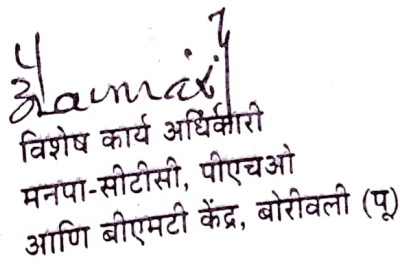 विशेष कार्य अधिकारी
मनपा-सीटीसी, पीएचओ
आणि बीएमटी केंद्र, बोरीवली (पू)